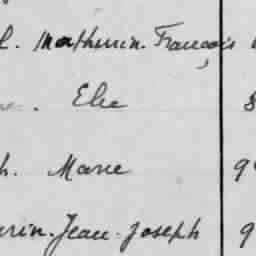 l. Mathurin. François
Elie
h. Marie 9
urin. Jean. Joseph 9